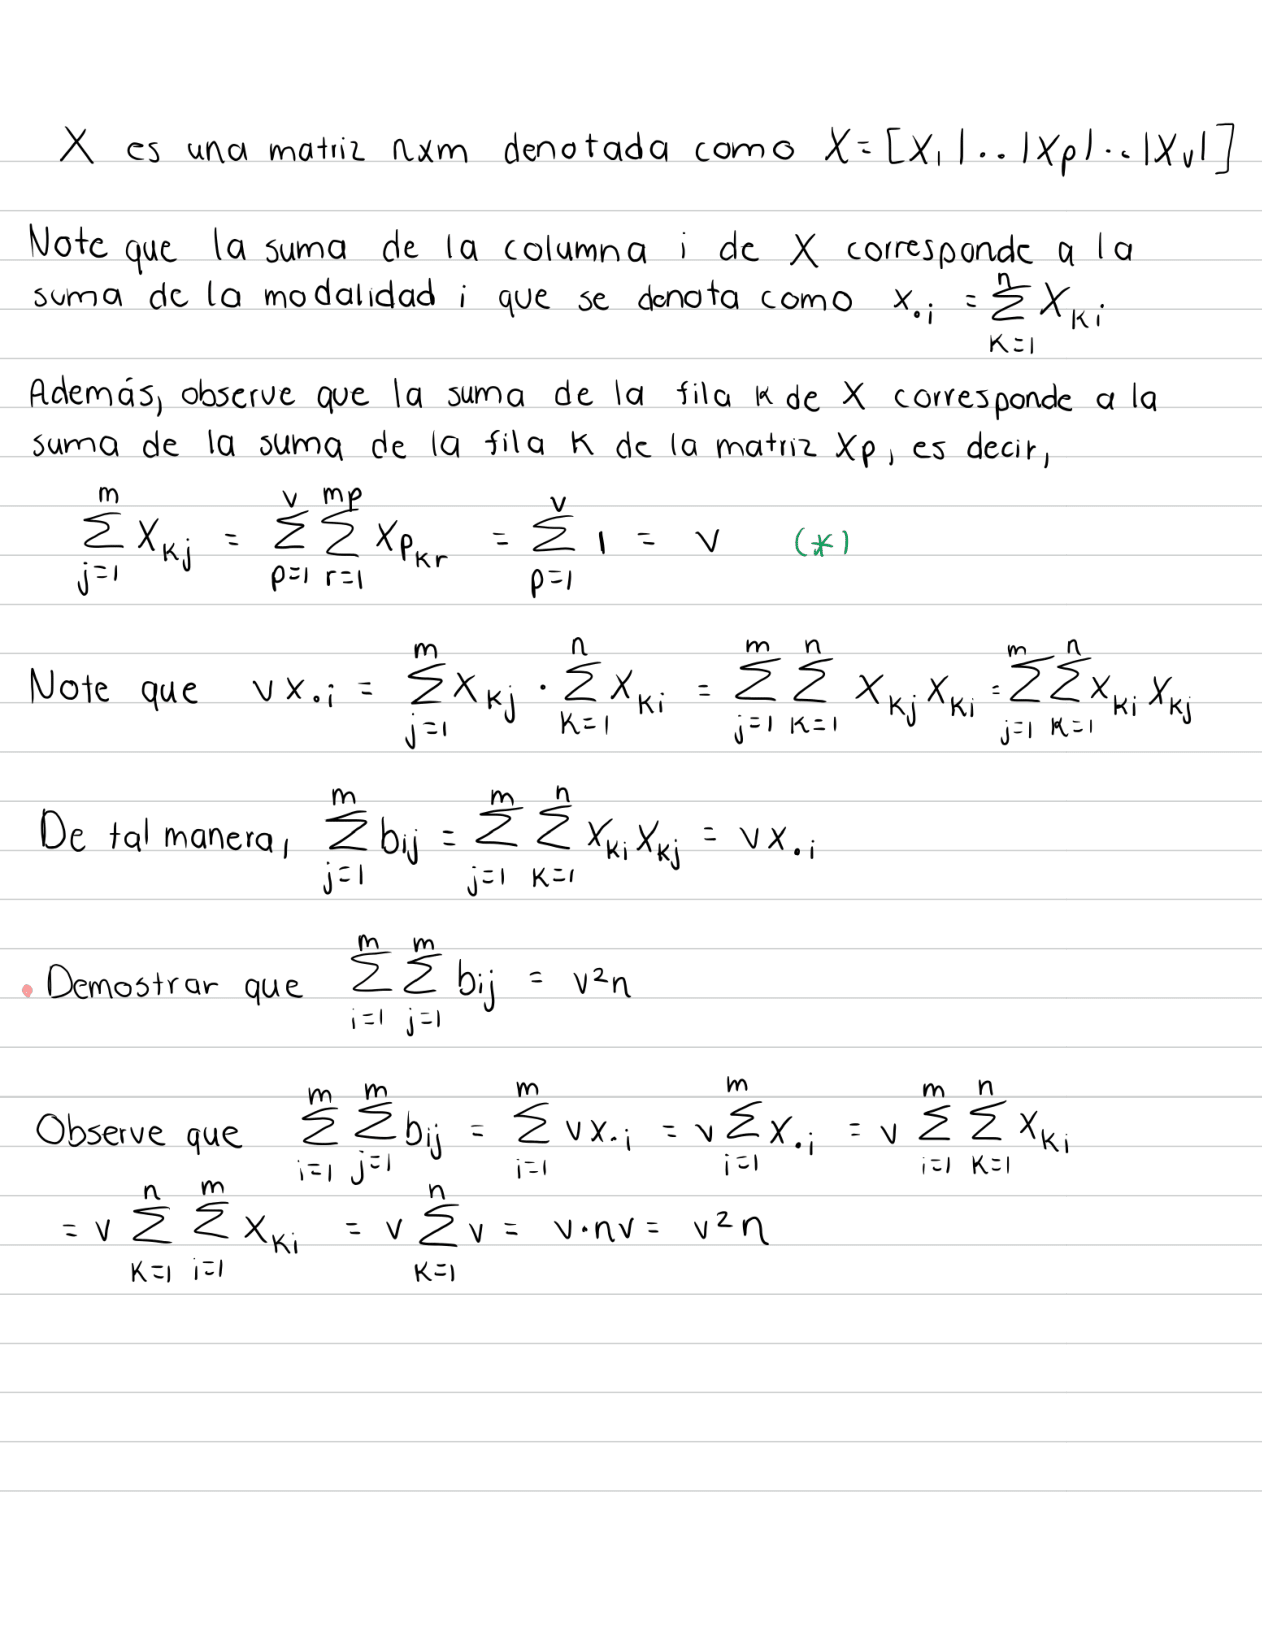 X es una matriz nxm denotada como X = [X₁|..|Xp|..|Xv|]
Note que la suma de la columna i de X corresponde a la
suma de la modalidad i que se denota como x.ᵢ = Σ_{k=1}^{n} X_{ki}
Además, observe que la suma de la fila k de X corresponde a la
suma de la suma de la fila k de la matriz Xp, es decir,
Σ_{j=1}^{m} X_{kj} = Σ_{p=1}^{v} Σ_{r=1}^{mp} X_{p_{kr}} = Σ_{p=1}^{v} 1 = v (*)
Note que v x.ᵢ = Σ_{j=1}^{m} X_{kj} · Σ_{k=1}^{n} X_{ki} = Σ_{j=1}^{m} Σ_{k=1}^{n} X_{kj} X_{ki} = Σ_{j=1}^{m} Σ_{k=1}^{n} X_{ki} X_{kj}
De tal manera, Σ_{j=1}^{m} b_{ij} = Σ_{j=1}^{m} Σ_{k=1}^{n} X_{ki} X_{kj} = v x.ᵢ
• Demostrar que Σ_{i=1}^{m} Σ_{j=1}^{m} b_{ij} = v²n
Observe que Σ_{i=1}^{m} Σ_{j=1}^{m} b_{ij} = Σ_{i=1}^{m} v x.ᵢ = v Σ_{i=1}^{m} x.ᵢ = v Σ_{i=1}^{m} Σ_{k=1}^{n} X_{ki}
= v Σ_{k=1}^{n} Σ_{i=1}^{m} X_{ki} = v Σ_{k=1}^{n} v = v·nv = v²n